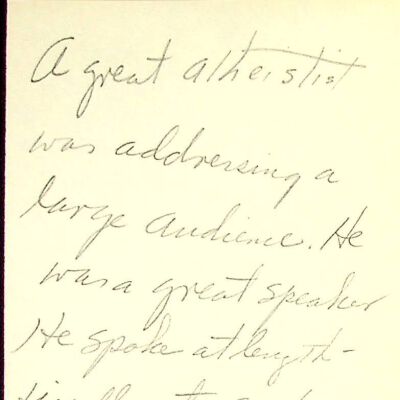 A great atheistist
was addressing a
large audience. He
was a great speaker
He spoke at length-